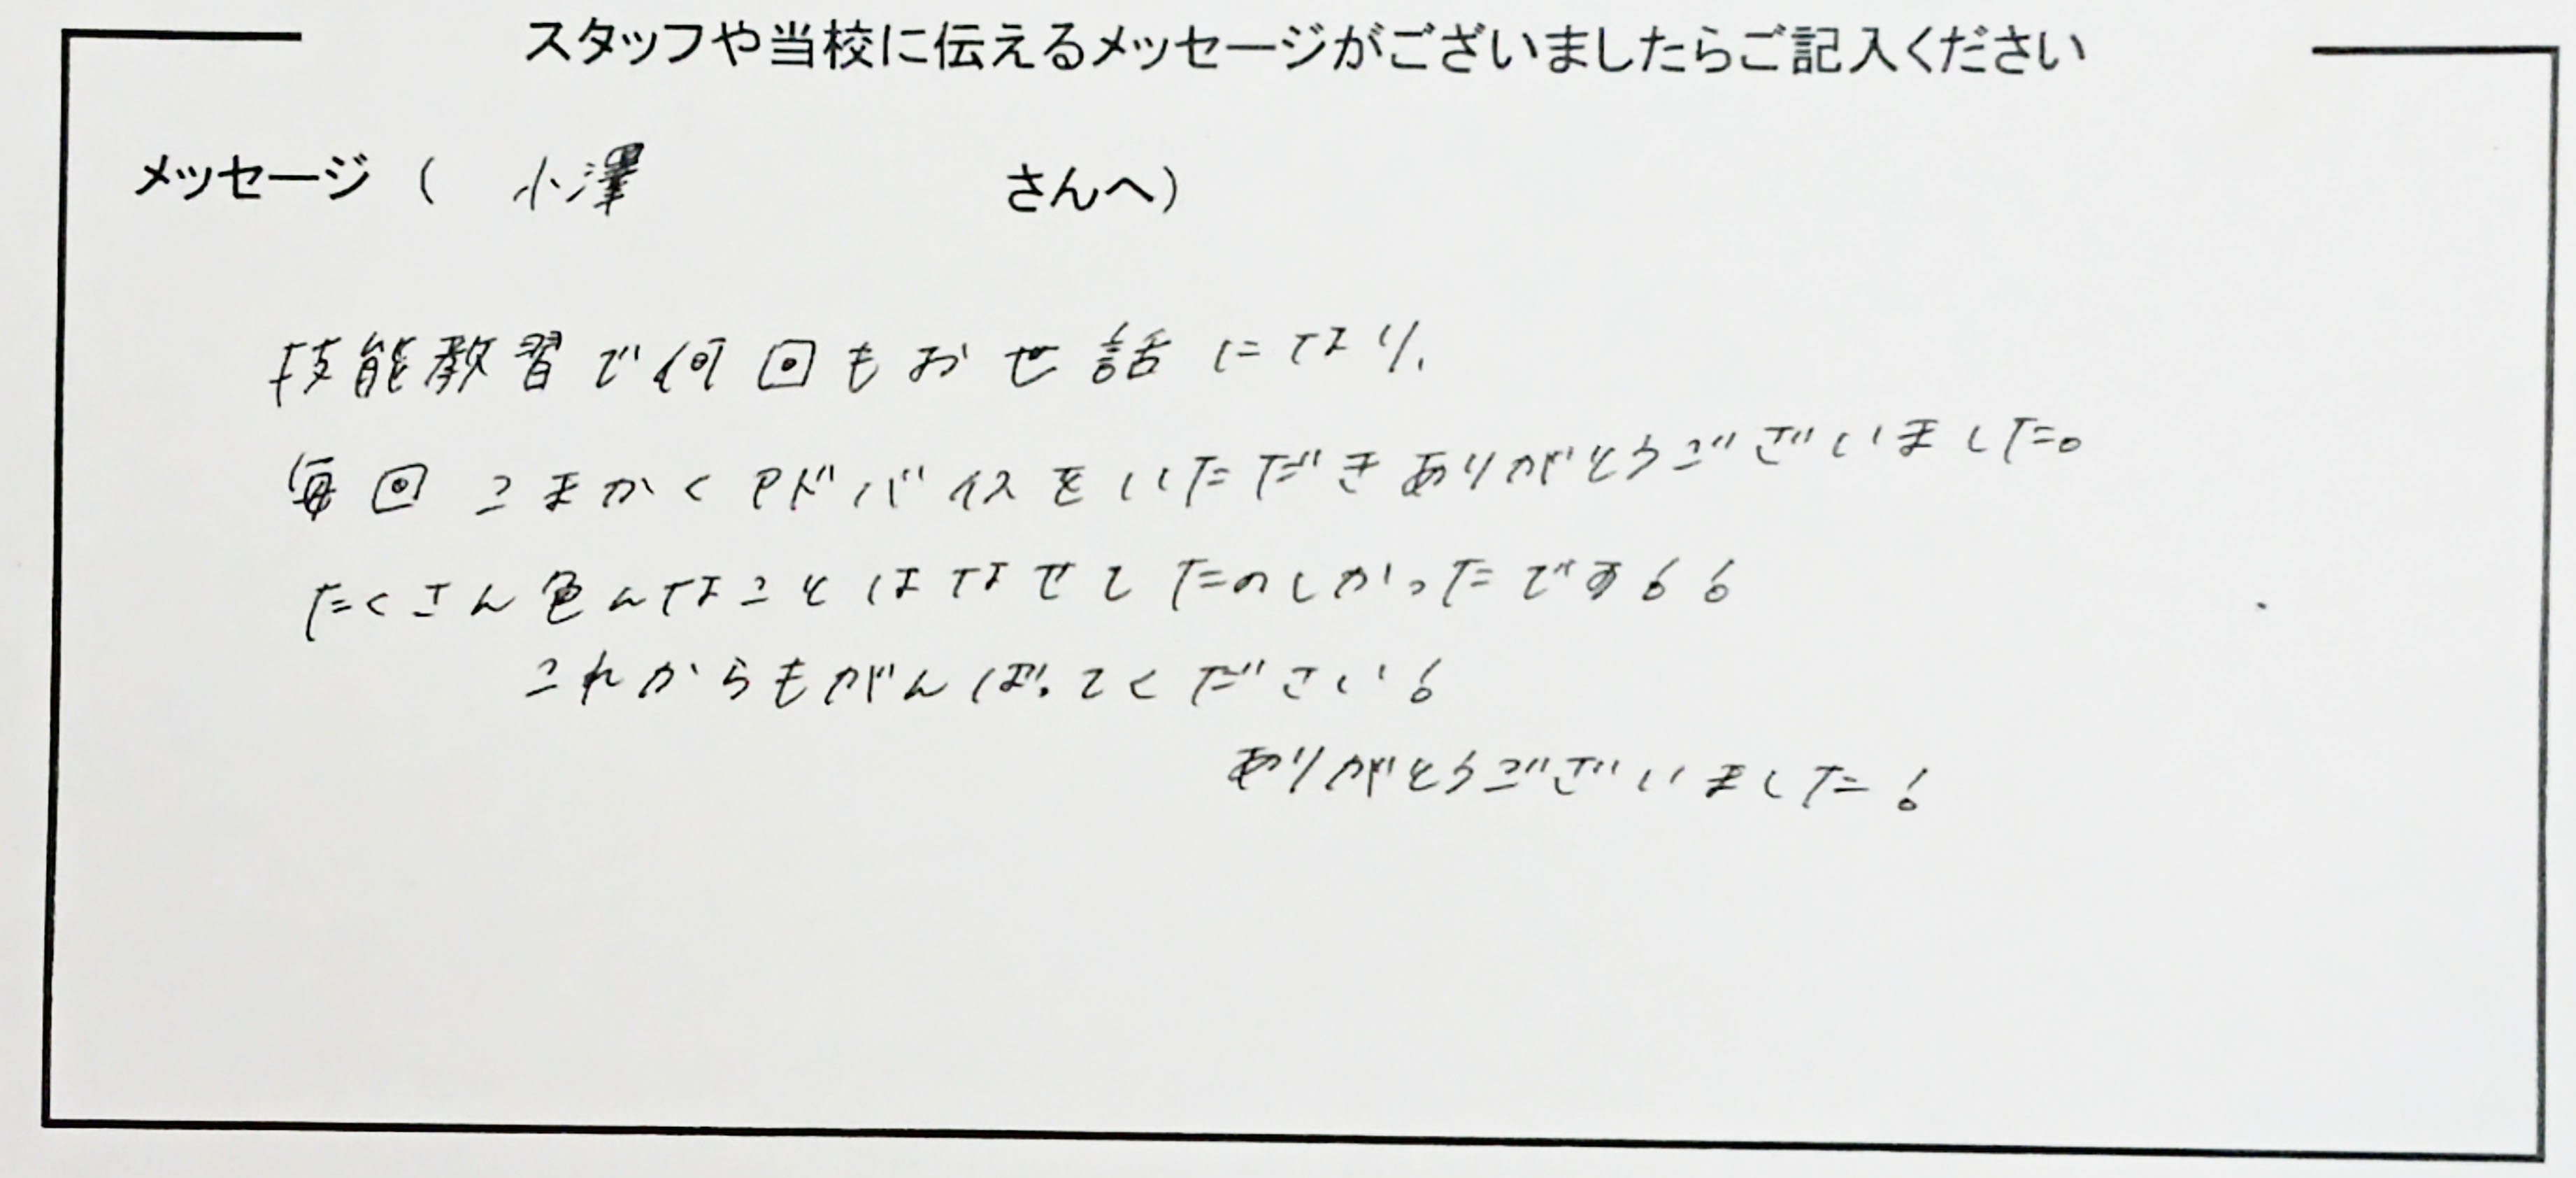 スタッフや当校に伝えるメッセージがございましたらご記入ください
メッセージ（ 小澤 さんへ）
技能教習で何回もおせ話になり、
毎回こまかくアドバイスをいただきありがとうございました。
たくさん色んなことはなせてたのしかったです!!
これからもがんばってください!
ありがとうございました!